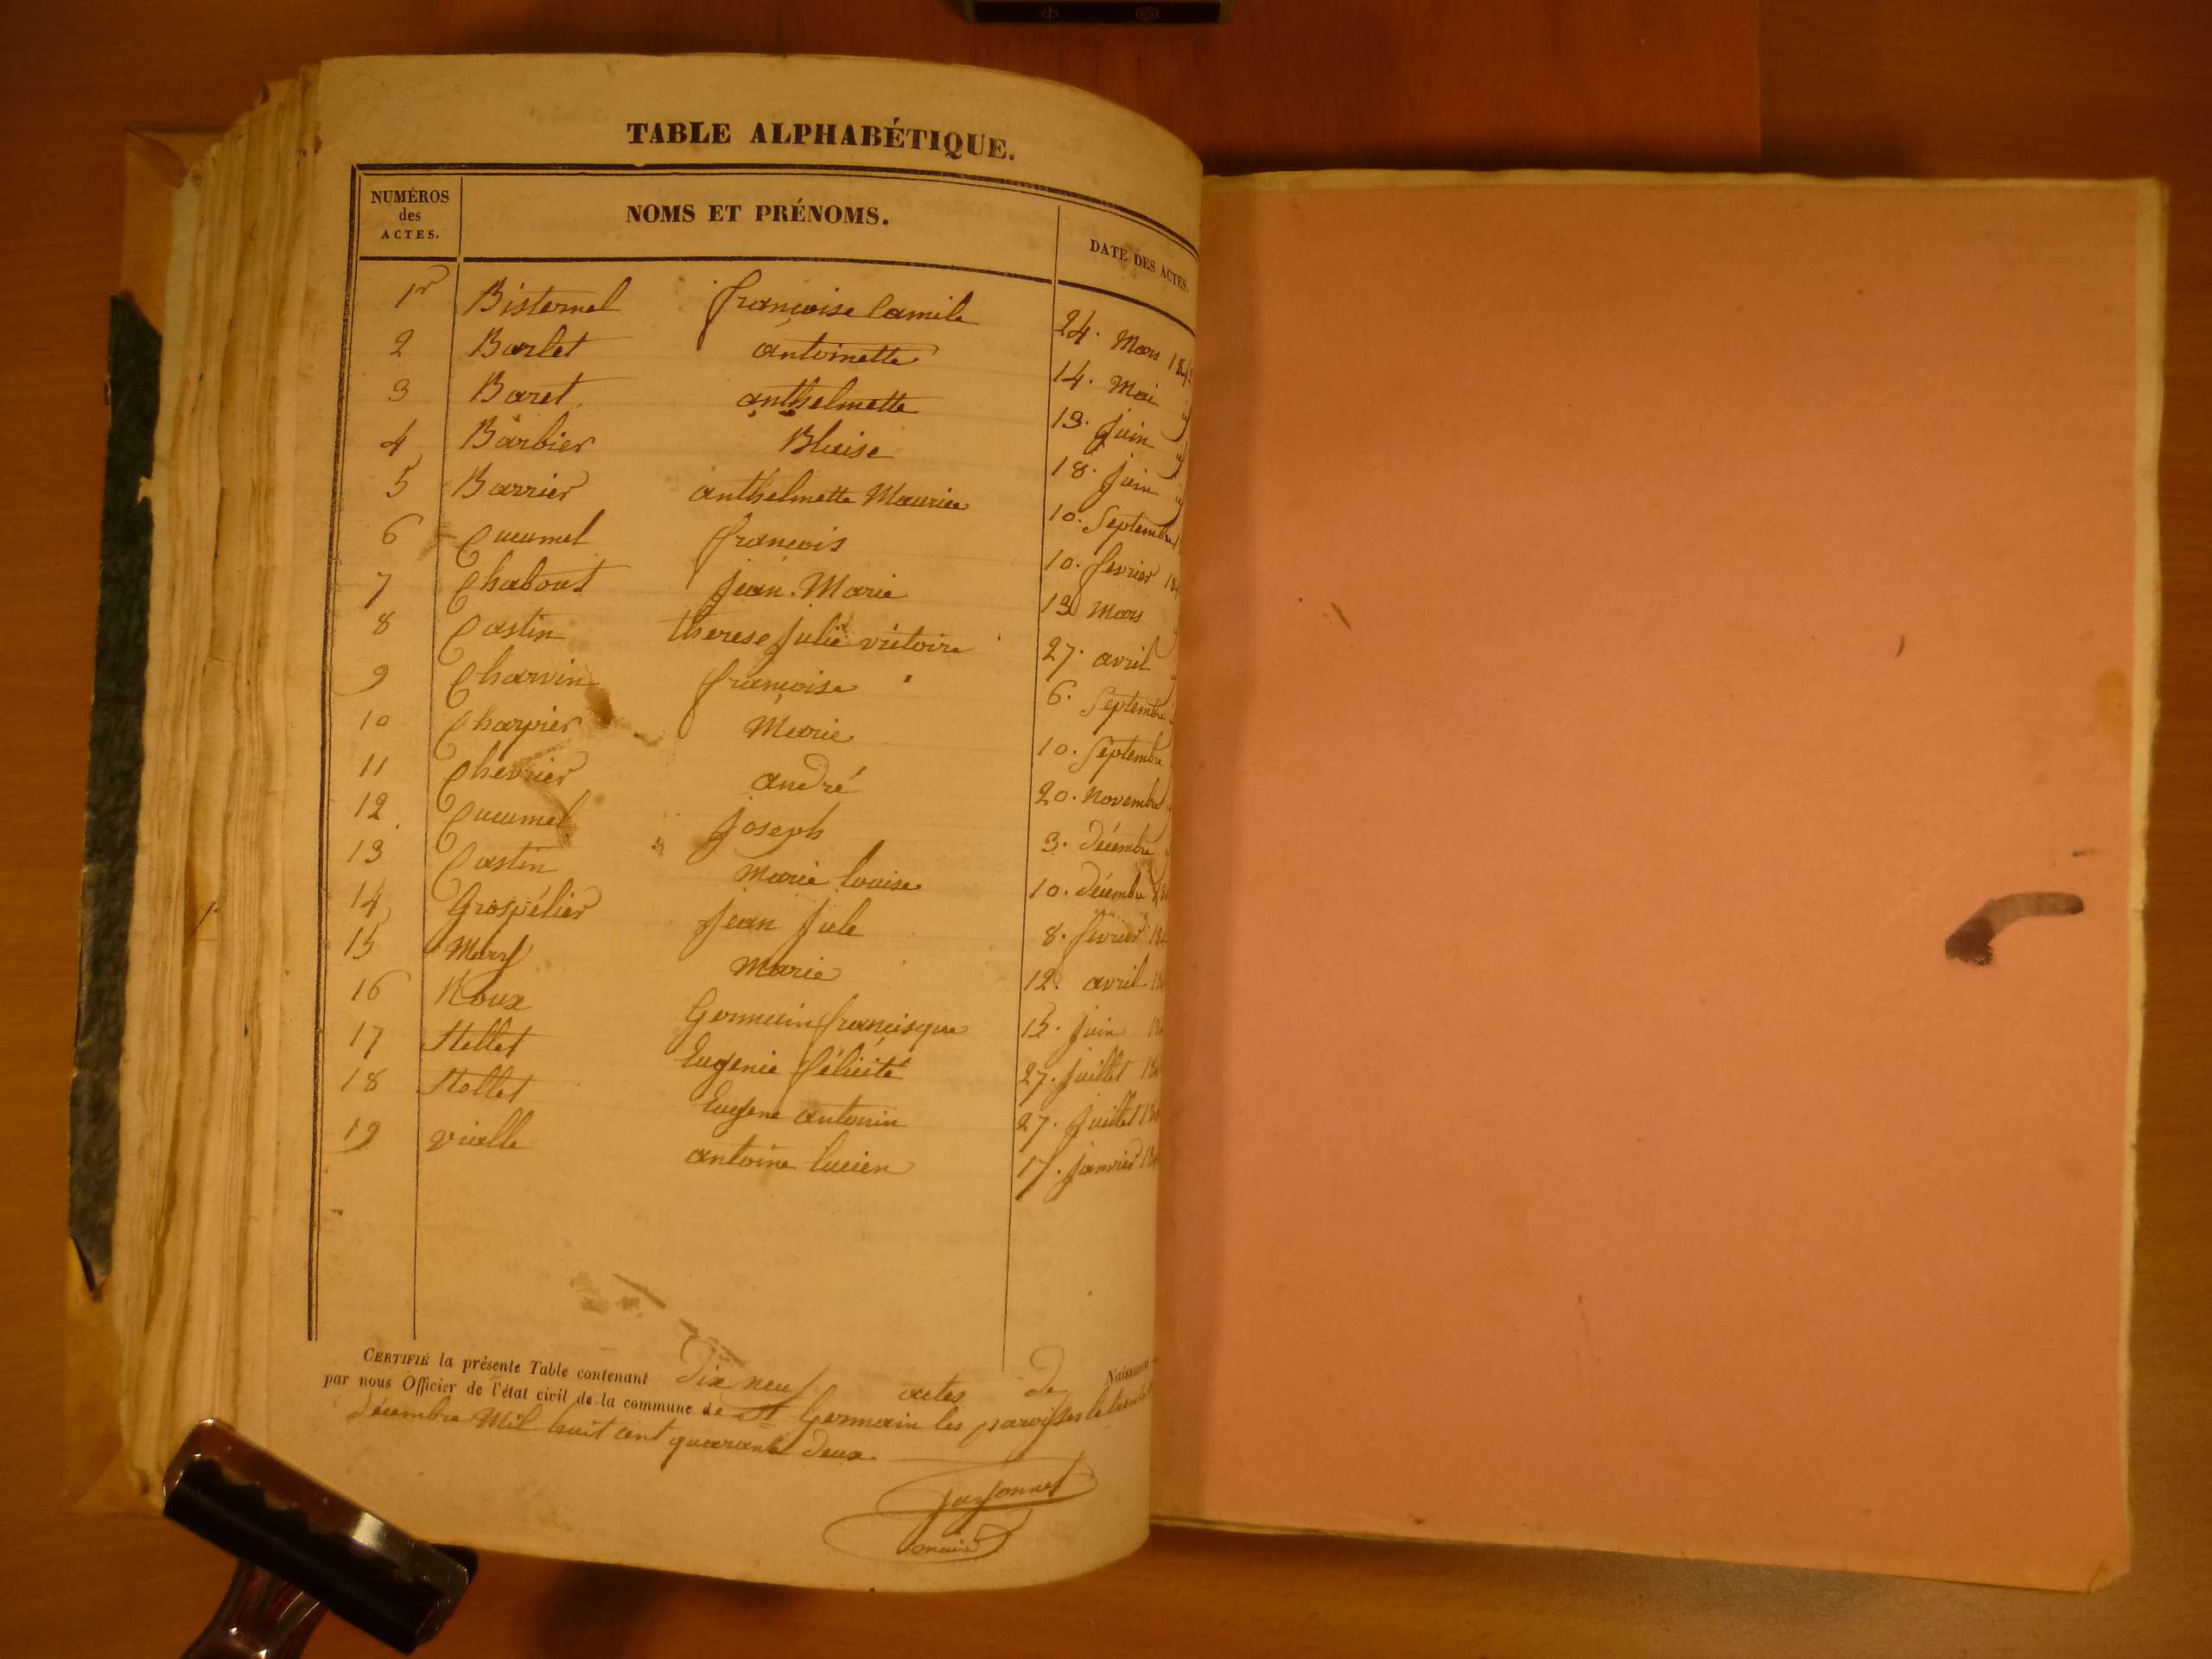 TABLE ALPHABÉTIQUE.
NUMÉROS des ACTES. NOMS ET PRÉNOMS. DATE DES ACTES.
1r Bisternel françoise Camile 24. Mars 184
2 Barlet antoinette 14. Mai
3 Baret anthelmette 13. juin
4 Barbier Blaise 18. juin
5 Barrier anthelmette Maurice 10. Septembre
6 Cucumel françois 10. fevrier 18
7 Chabout jean. Marie 13 Mars
8 Castin therese julie victoire 27. avril
9 Charvin françoise 6. Septembre
10 Charpier Marie 10. Septembre
11 Chevrier andré 20. Novembre
12 Cucumel joseph 3. décembre
13 Castin Marie louise 10. décembre
14 Grospélier jean jule 8. fevrier 18
15 Mary Marie 12. avril 18
16 Roux Germain francisque 15. juin
17 Stellet Eugenie félicité 27. juillet 18
18 Stellet Eugene antonin 27. juillet 18
19 vialle antoine lucien 17. janvier 18
CERTIFIÉ la présente Table contenant dix neuf actes de Naissance
par nous Officier de l'état civil de la commune de St Germain les paroisses le
décembre Mil huit cent quarante deux.
maire